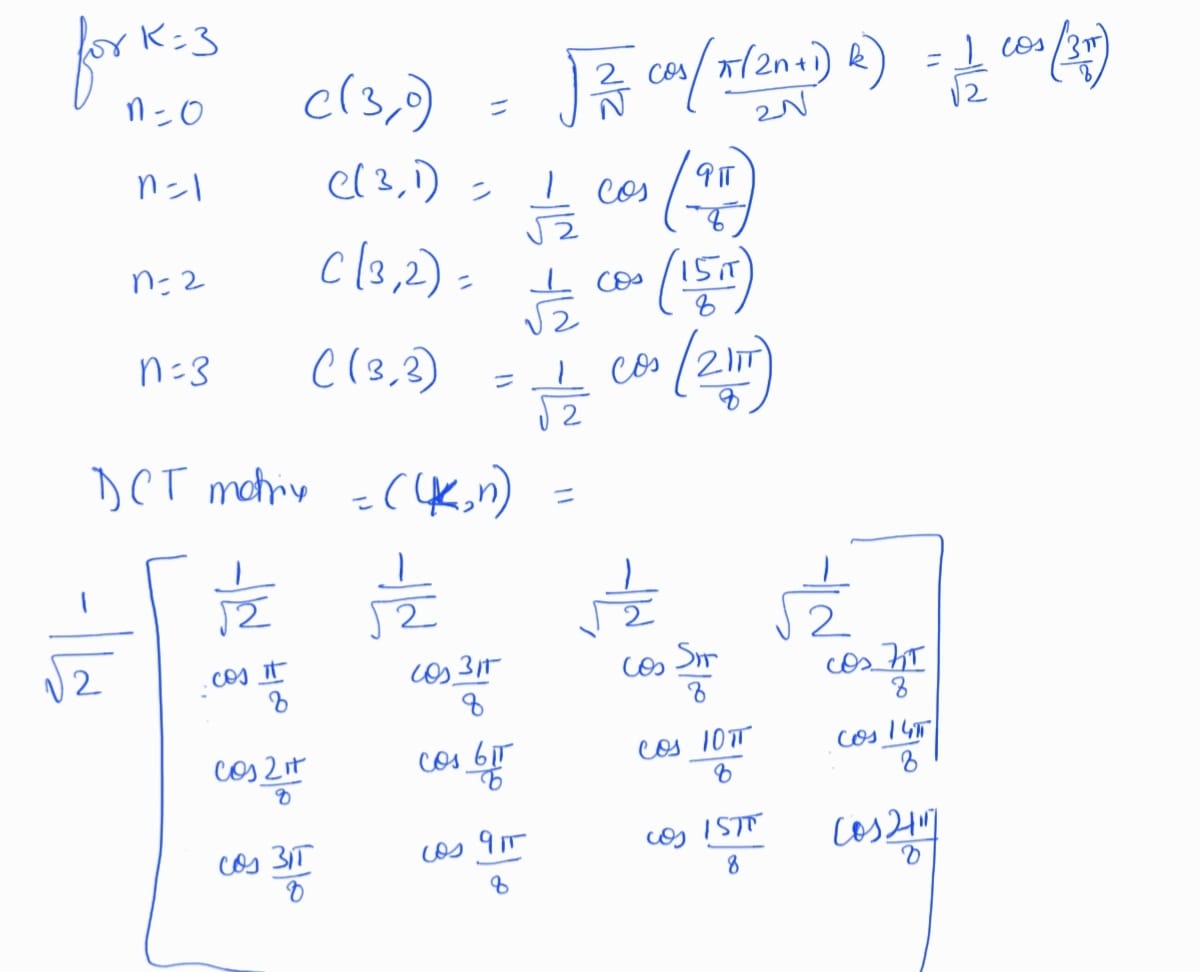 for K=3
n=0 C(3,0) = √(2/N) cos(π(2n+1)/2N k) = 1/√2 cos(3π/8)
n=1 C(3,1) = 1/√2 cos(9π/8)
n=2 C(3,2) = 1/√2 cos(15π/8)
n=3 C(3,3) = 1/√2 cos(21π/8)
DCT matrix = C(K,n) =
1/√2 [ 1/√2 1/√2 1/√2 1/√2
cos π/8 cos 3π/8 cos 5π/8 cos 7π/8
cos 2π/8 cos 6π/8 cos 10π/8 cos 14π/8
cos 3π/8 cos 9π/8 cos 15π/8 cos 21π/8 ]